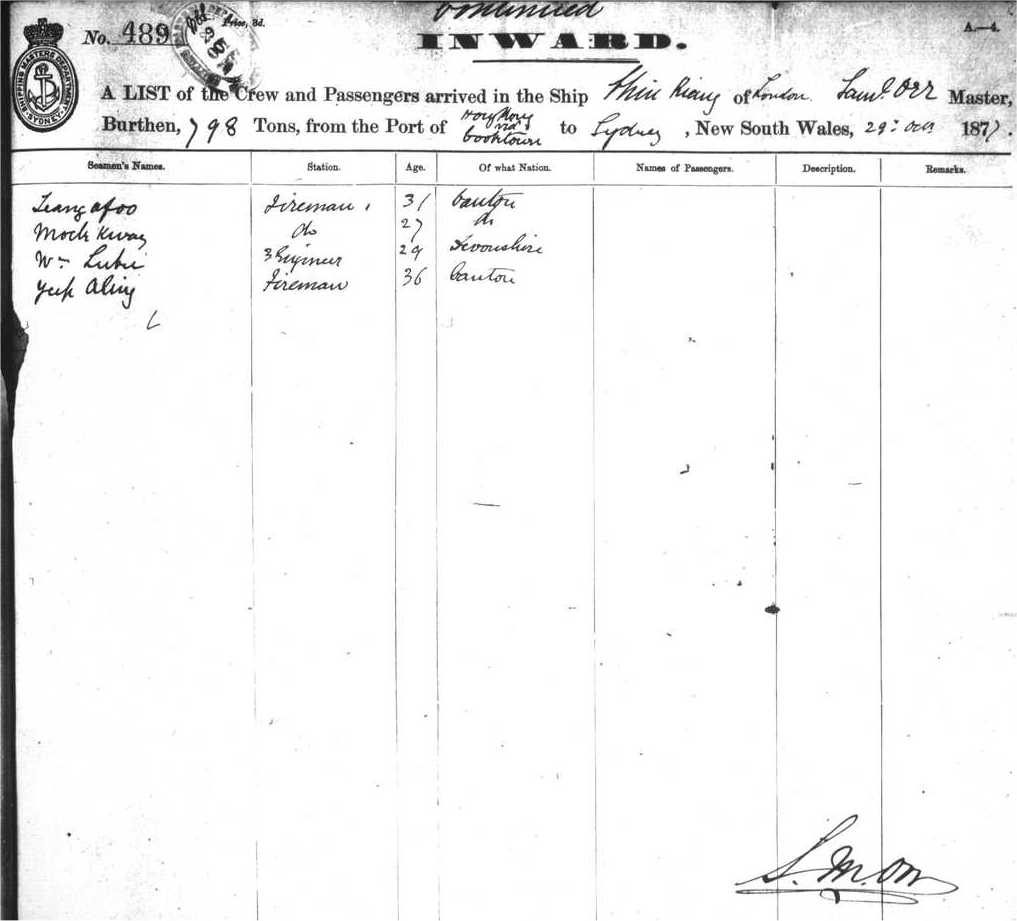 Continued
No. 489
Price, 3d.
A.—4.
INWARD.
SHIPPING MASTERS DEPARTMENT SYDNEY
A LIST of the Crew and Passengers arrived in the Ship of London. Saml. Orr Master,
Burthen, 798 Tons, from the Port of Hong Kong via Cooktown to Sydney, New South Wales, 29: Oct 1877.
Seamen's Names. Station. Age. Of what Nation. Names of Passengers. Description. Remarks.
Leang afoo Fireman 31 Canton
Mock Kway do 27 do
Wm 3 Engineer 29 Devonshire
Yeep Fireman 36 Canton
S. M. Orr